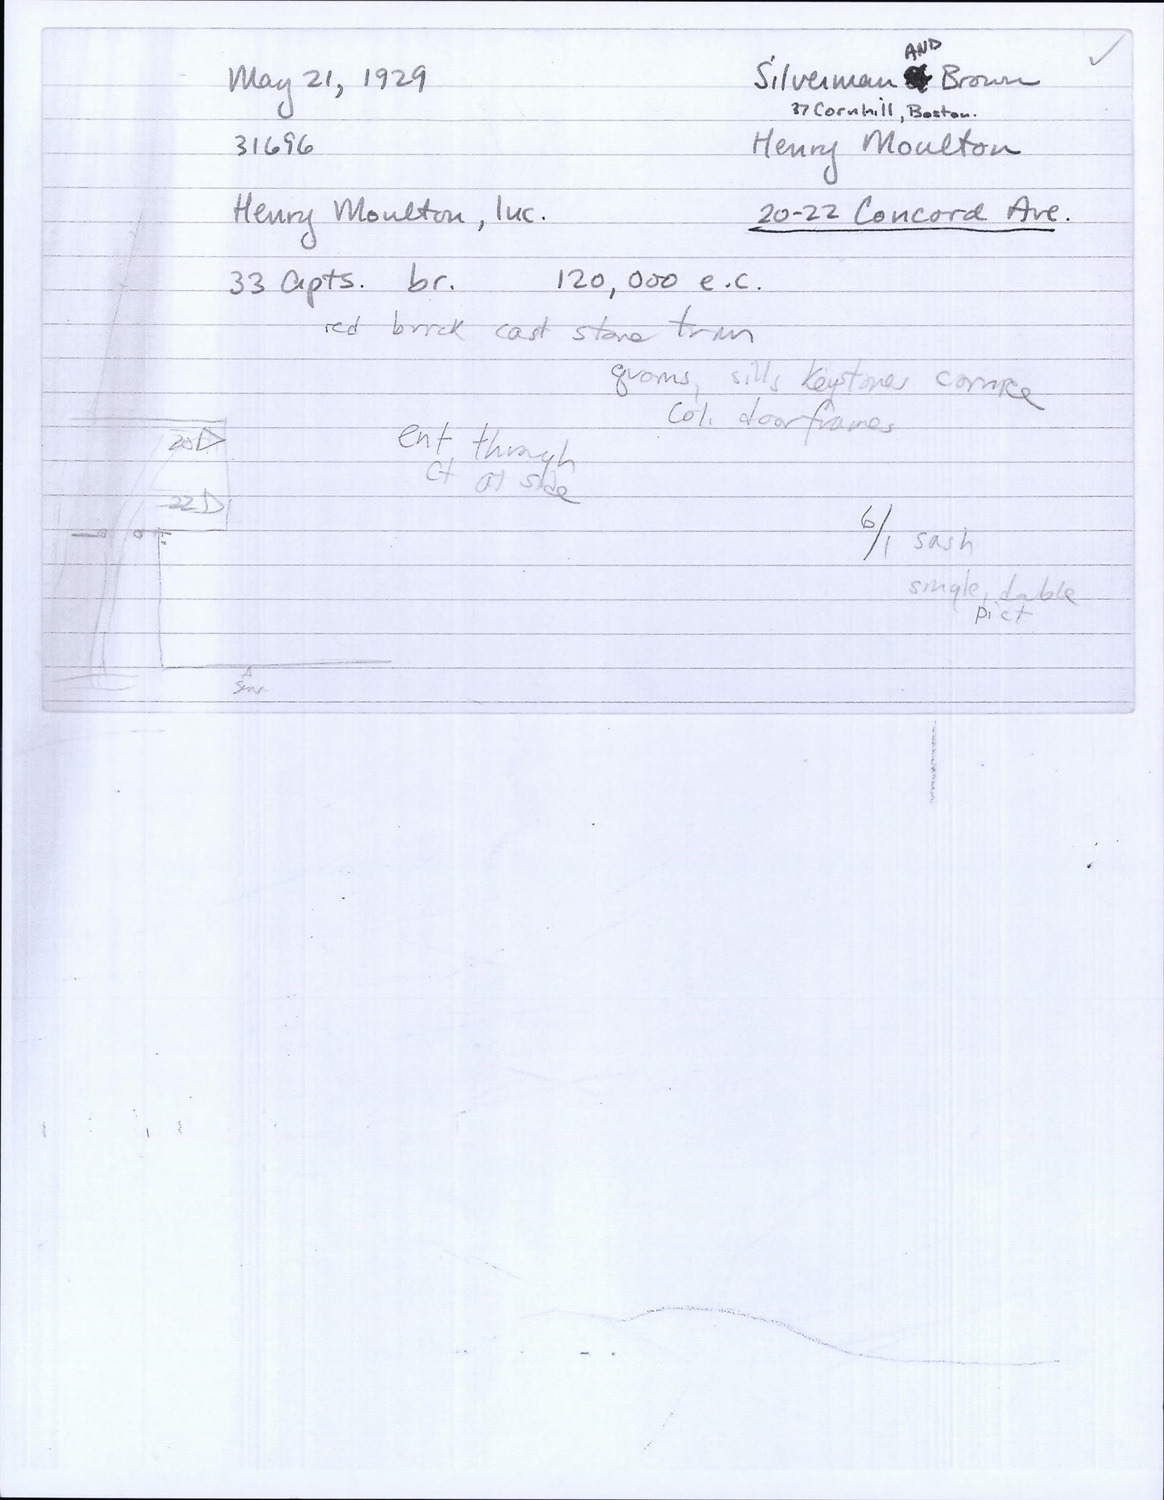 May 21, 1929
Silverman AND Brown
37 Cornhill, Boston.
31696
Henry Moulton
Henry Moulton, Inc.
20-22 Concord Ave.
33 Apts. br. 120,000 e.c.
red brick cast stone trim
quoins, sills keystones cornice
Col. doorframes
20
ent. through
ct at side
22
6/1 sash
single, double
pict